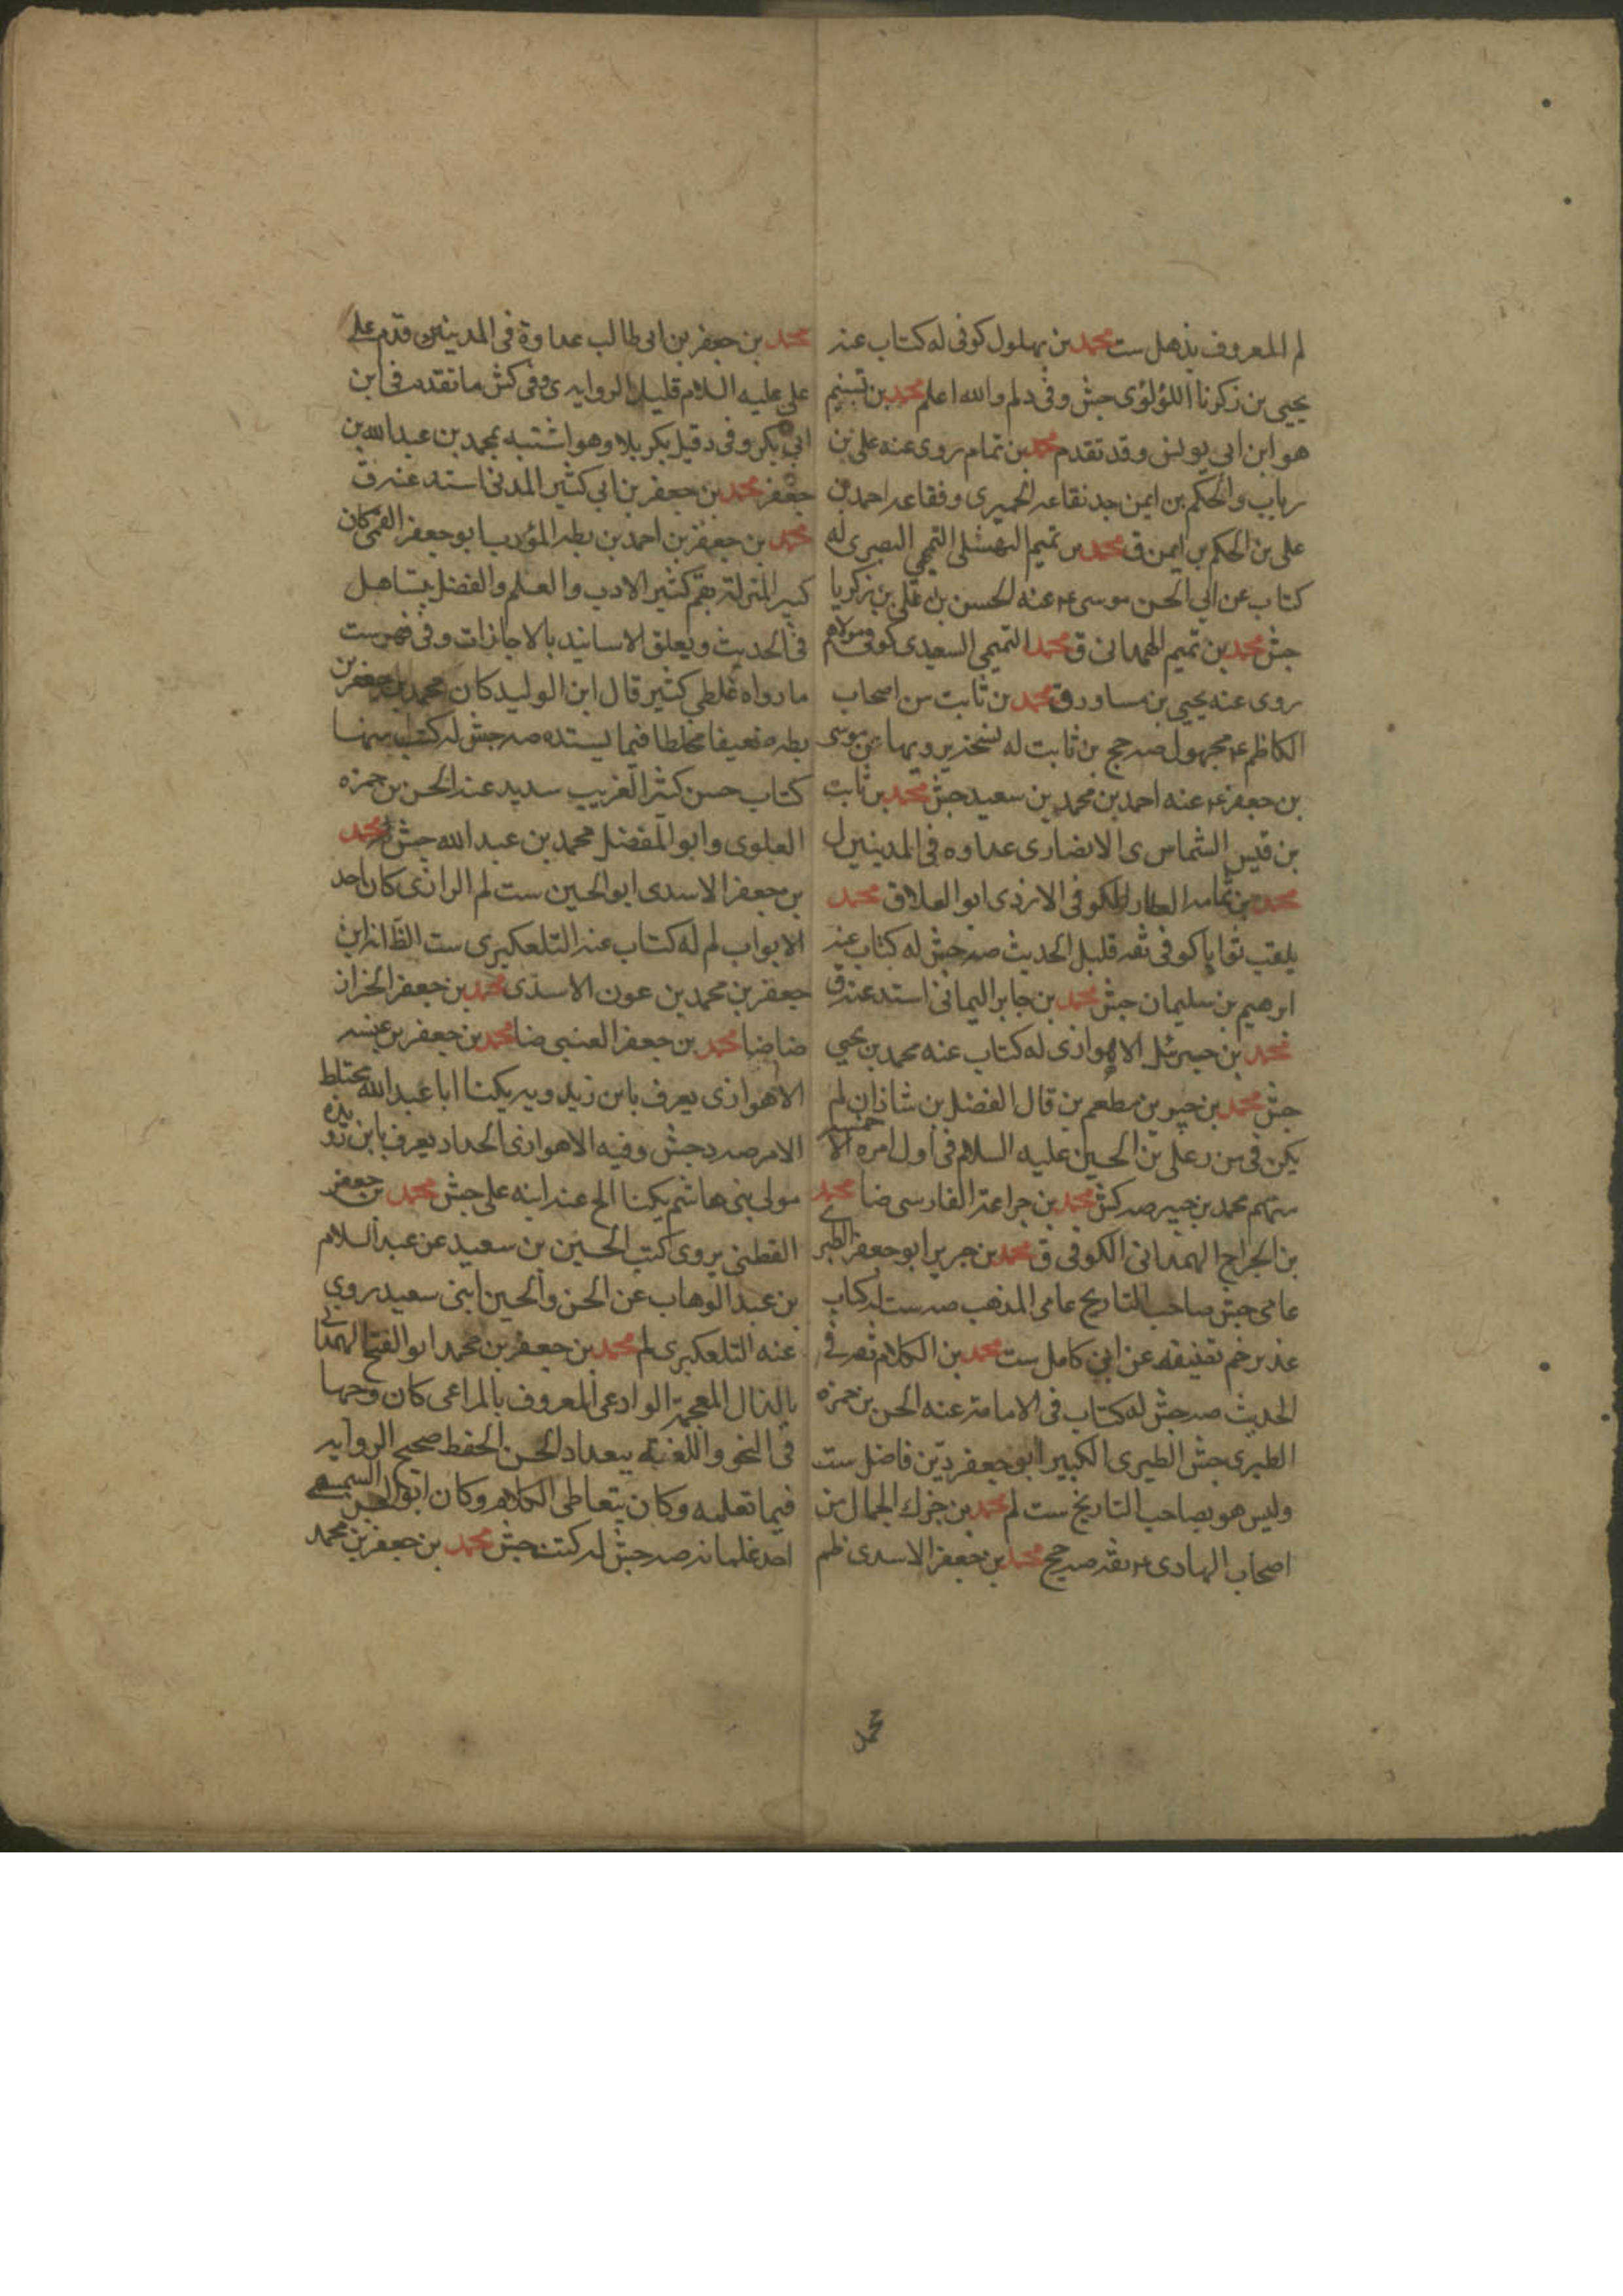 لم المعروف بذهل ست محمد بن بهلول كوفى له كتاب عنه
يحيى بن زكريا اللؤلؤى جش وفى د لم والله اعلم محمد بن تسنيم
هو ابن ابى يونس وقد تقدم محمد بن تمام روى عنه على بن
رباب والحكم بن ايمن جد نقاعه الحميرى وفقاعه احمد بن
على بن الحكم بن ايمن ق محمد بن تميم النهشلى التميمى البصرى له
كتاب عن ابى الحسن موسى ع عنه الحسن بن على بن زكريا
جش محمد بن تميم الهمدانى ق محمد التميمى السعيدى كوفى مولاهم
روى عنه يحيى بن مساور ق محمد بن ثابت من اصحاب
الكاظم ع مجهول صه جح بن ثابت له نسخة يرويها عن موسى
بن جعفر ع عنه احمد بن محمد بن سعيد جش محمد بن ثابت
بن قيس الشماس ى الانصارى عداوه فى المدينين ل
محمد بن ثمامه العطار الكوفى الازدى ابو العلا ق محمد
يلقب ثوابا كوفى ثقه قليل الحديث صه جش له كتاب عنه
ابرهيم بن سليمان جش محمد بن جابر اليمانى اسند عنه ق
محمد بن جبرئل الاهوازى له كتاب عنه محمد بن يحيى
جش محمد بن جبير بن مطعم ين قال الفضل بن شاذان لم
يكن فى من د على بن الحسين عليه السلام فى اول امره الا خمسه
منهم محمد بن جبير صه كش محمد بن جراعة الفارسى ضا محمد
بن الجراح الهمدانى الكوفى ق محمد بن جرير ابو جعفر الطبرى
عامى جش صاحب التاريخ عامى المذهب صه ست له كتاب
غدير خم تصنيفه عن ابى كامل ست محمد بن الكلام ثقه فى
الحديث صه جش له كتاب فى الامامة عنه الحسن بن حمزه
الطبرى جش الطبرى الكبير ابو جعفر دين فاضل ست
وليس هو بصاحب التاريخ ست لم محمد بن جزك الجمال من
اصحاب الهادى ع ثقه صه جح محمد بن جعفر الاسدى ظم
محمد
محمد بن جعفر بن ابى طالب عداوة فى المدينين قدم على
على عليه السلام قليل الروايه ى وفى كش ما تقدم فى ابن
ابى بكر وفى د قيل بكربلا وهو اشتبه بمحمد بن عبد الله بن
جعفر محمد بن جعفر بن ابى كثير المدنى اسند عنه ق
محمد بن جعفر بن احمد بن بطه المؤدب ابو جعفر القمى كان
كبير المنزلة بقم كثير الادب والعلم والفضل يتساهل
فى الحديث ويعلق الاسانيد بالاجازات وفى فهرست
ما رواه غلط كثير قال ابن الوليد كان محمد بن جعفر بن
بطه ضعيفا مخلطا فيما يسنده صه جش له كتب منها
كتاب حسن كثير الغريب سديد عنه الحسن بن حمزه
العلوى وابو المفضل محمد بن عبد الله جش لم محمد
بن جعفر الاسدى ابو الحسين ست لم الرازى كان احد
الابواب لم له كتاب عنه التلعكبرى ست الظ انه ابن
جعفر بن محمد بن عون الاسدى محمد بن جعفر الخزاز
ضا ضا محمد بن جعفر العنبى ضا محمد بن جعفر بن عنبسه
الاهوازى يعرف بابن زيدويه يكنا ابا عبد الله مختلط
الامر صه د جش وفيه الاهوازى الحداد يعرف بابن
مولى بنى هاشم يكنا الخ عنه ابنه على جش محمد بن جعفر
القطنى يروى كتب الحسين بن سعيد عن عبد السلام
بن عبد الوهاب عن الحسن والحسين ابنى سعيد روى
عنه التلعكبرى لم محمد بن جعفر بن محمد ابو الفتح الهمدانى
بالذال المعجمة الوادعى المعروف بالمراعى كان وجها
فى النحو واللغة ببغداد الحسن الحفظ صحيح الروايه
فيما تعلمه وكان يتعاطى الكلام وكان ابو الحسن السمسمى
احد غلمانه صه جش له كتب جش محمد بن جعفر بن محمد